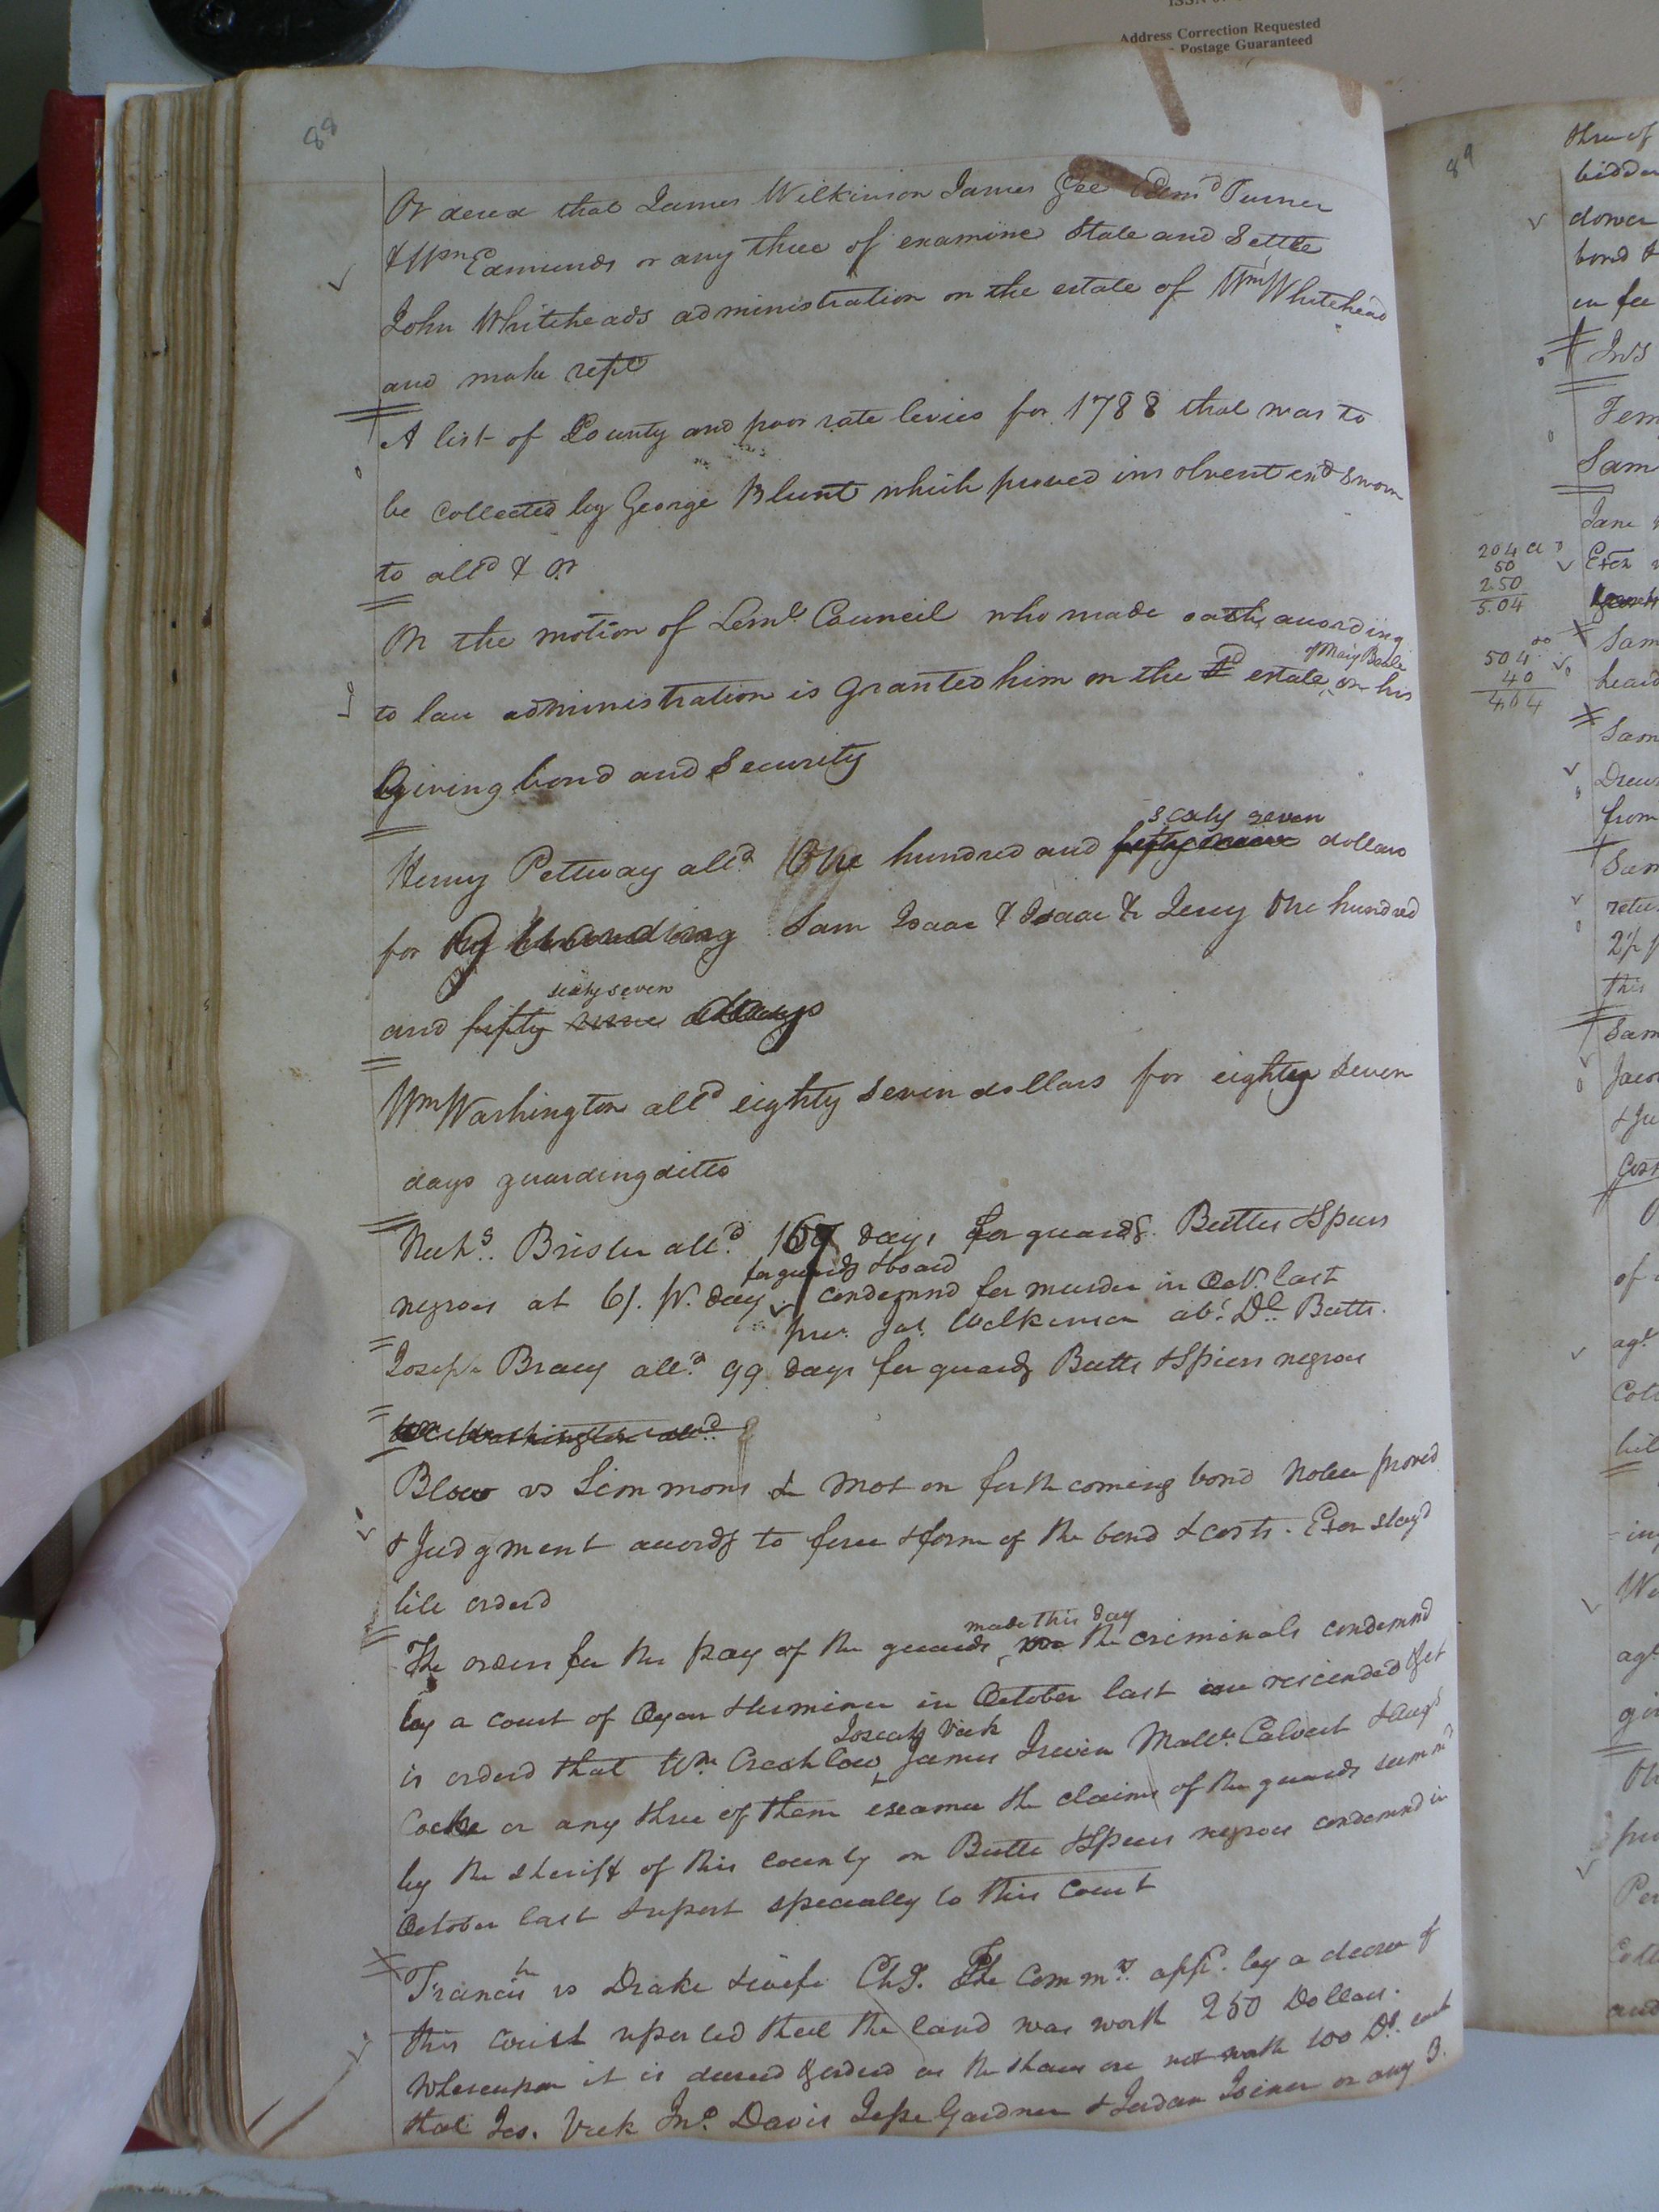 ISSN
Address Correction Requested
Postage Guaranteed
88
Ordered that James Wilkinson James Gee Edm^d Turner
& W^m Edmunds or any three of examine State and Settle
John Whiteheads administration on the estate of W^m Whitehead
and make rep^t
A list of County and poor rate levies for 1788 that was to
be Collected by George Blunt which proved insolvent and sworn
to all^d & Or
On the motion of Lem^l Council who made oath according
to law administration is granted him on the estate of Mary Battle on his
giving bond and Security
Henry Pettway all^d One hundred and sixty seven dollars
for guarding Sam Isaac & Isaac & Jerry One hundred
and sixty seven days
W^m Washington all^d eighty seven dollars for eighty seven
days guarding ditto
all^d 167 days for guard^g Butts & Spiers
negroes at 6/. P. day for guard^g & board condemnd for murder in Oct^r last
Jas. Wilkinson Butts.
Joseph Bracy all^d 99 days for guard^g Butts & Spiers negroes
Washington all^d
Blow vs Simmons & Mot on forthcoming bond Notice proved
& Judgment accord^g to force & form of the bond & costs. Exon stayd
till orderd
The orders for the pay of the guards made this day the criminals condemnd
by a court of Oyer & terminer in October last are rescinded & it
is orderd that W^m Crichlow Joseph Vick James Irwin Matt^w Calvert &
Cocke or any three of them examine the claims of the guards summ^d
by the sheriff of this county on Butts & Spiers negroes condemnd in
October last & report specially to this Court
Francis vs Drake & wife Ch^y. The Comm^rs app^d by a decree of
this court reported that the land was worth 250 Dollars.
Whereupon it is decreed & orderd as the shares are not worth 100 D^s. each
that Jos. Vick Jn^o. Davis Jesse Gardner & Jordan Joiner or any 3.
89
three of
bidder
dower
bond &
in fee
Sam
Jane
Exon
204
50
250
5.04
Sam
504
40
464
heard
Sam
Drew
from
Sam
this
Sam
of
ag^t
ag^t